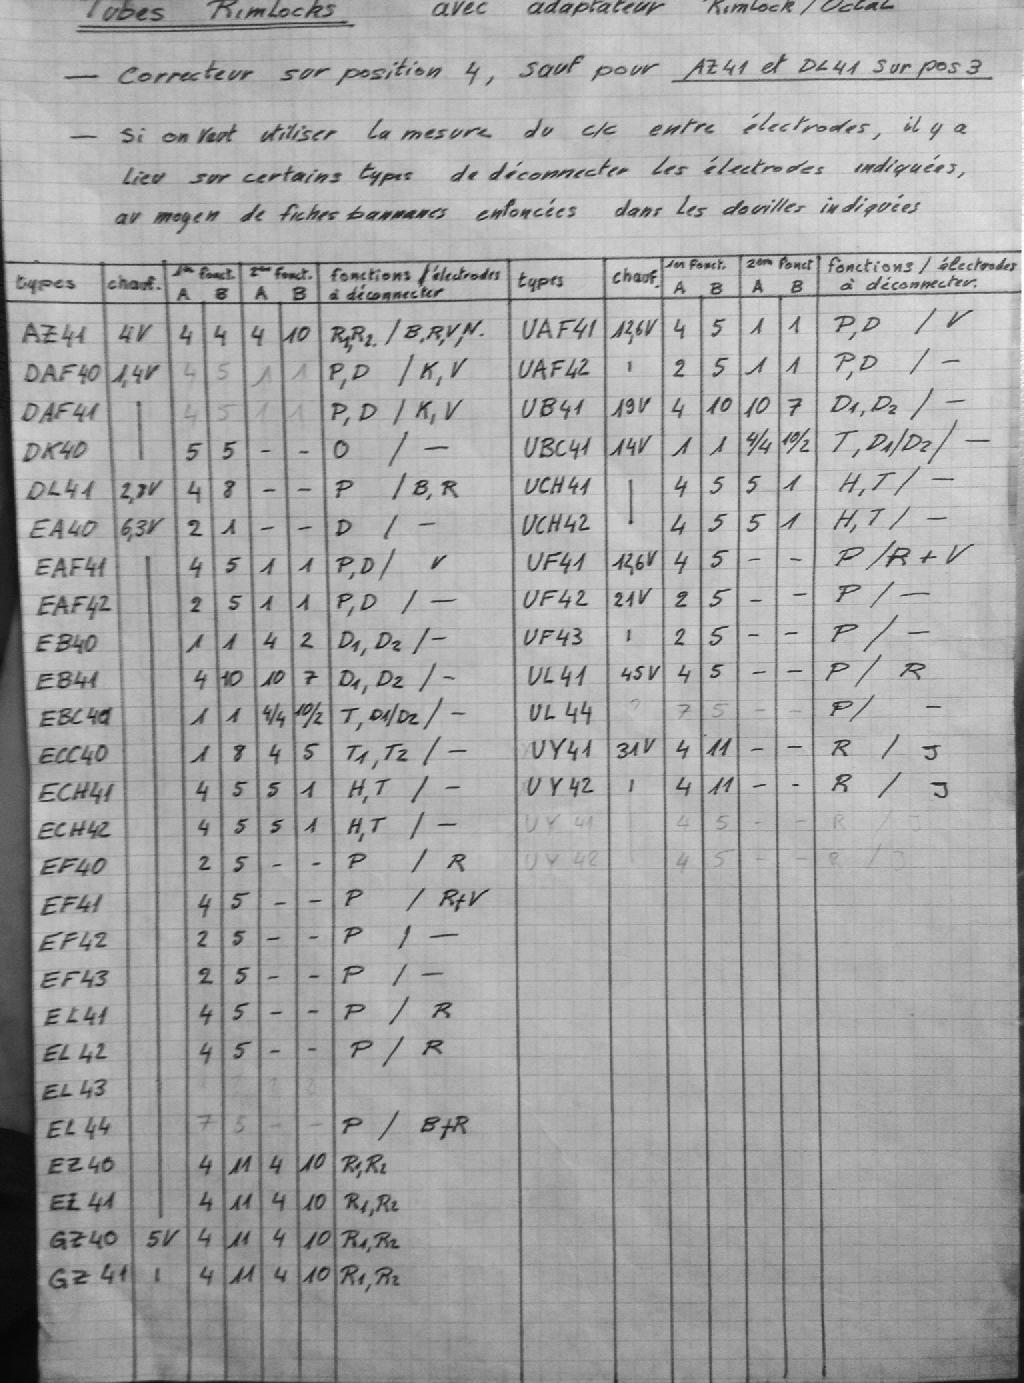 Tubes Rimlocks avec adaptateur Rimlock/Octal
— Correcteur sur position 4, sauf pour AZ41 et DL41 sur pos 3
— Si on veut utiliser la mesure du c/c entre électrodes, il y a
lieu sur certains types de déconnecter les électrodes indiquées,
au moyen de fiches bannanes enfoncées dans les douilles indiquées
types chauf. 1ère Fonct. A B 2ème Fonct. A B fonctions / électrodes à déconnecter
AZ41 4V 4 4 4 10 R1,R2. / B,R,V,N.
DAF40 1,4V 4 5 1 1 P,D / K,V
DAF41 4 5 1 1 P,D / K,V
DK40 5 5 - - O / —
DL41 2,8V 4 8 - - P / B,R
EA40 6,3V 2 1 - - D / —
EAF41 4 5 1 1 P,D / V
EAF42 2 5 1 1 P,D / —
EB40 1 1 4 2 D1,D2 / -
EB41 4 10 10 7 D1,D2 / -
EBC41 1 1 4/4 10/2 T,D1/D2 / —
ECC40 1 8 4 5 T1,T2 / —
ECH41 4 5 5 1 H,T / —
ECH42 4 5 5 1 H,T / —
EF40 2 5 - - P / R
EF41 4 5 - - P / R+V
EF42 2 5 - - P / —
EF43 2 5 - - P / —
EL41 4 5 - - P / R
EL42 4 5 - - P / R
EL43
EL44 7 5 - - P / B+R
EZ40 4 11 4 10 R1,R2
EZ41 4 11 4 10 R1,R2
GZ40 5V 4 11 4 10 R1,R2
GZ41 ı 4 11 4 10 R1,R2
types chauf. 1er Fonct. A B 2ème Fonct A B fonctions / électrodes à déconnecter.
UAF41 12,6V 4 5 1 1 P,D / V
UAF42 ı 2 5 1 1 P,D / —
UB41 19V 4 10 10 7 D1,D2 / —
UBC41 14V 1 1 4/4 10/2 T,D1/D2 / —
UCH41 4 5 5 1 H,T / —
UCH42 4 5 5 1 H,T / —
UF41 12,6V 4 5 - - P / R+V
UF42 21V 2 5 - - P / —
UF43 ı 2 5 - - P / —
UL41 45V 4 5 - - P / R
UL44 ? 7 5 - - P / —
UY41 31V 4 11 - - R / J
UY42 ı 4 11 - - R / J
UY41 4 5 - - R / J
UY42 4 5 - - R / J